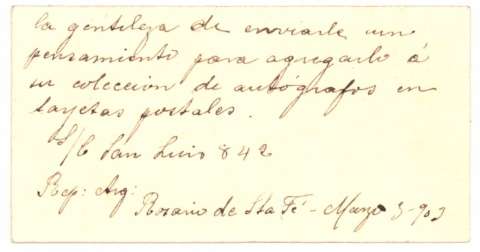 la gentileza de enviarle un
pensamiento para agregarlo á
su colección de autógrafos en
tarjetas postales.
S/C San Luis 842
Rep: Arg:
Rosario de Sta Fé - Marzo 3-903